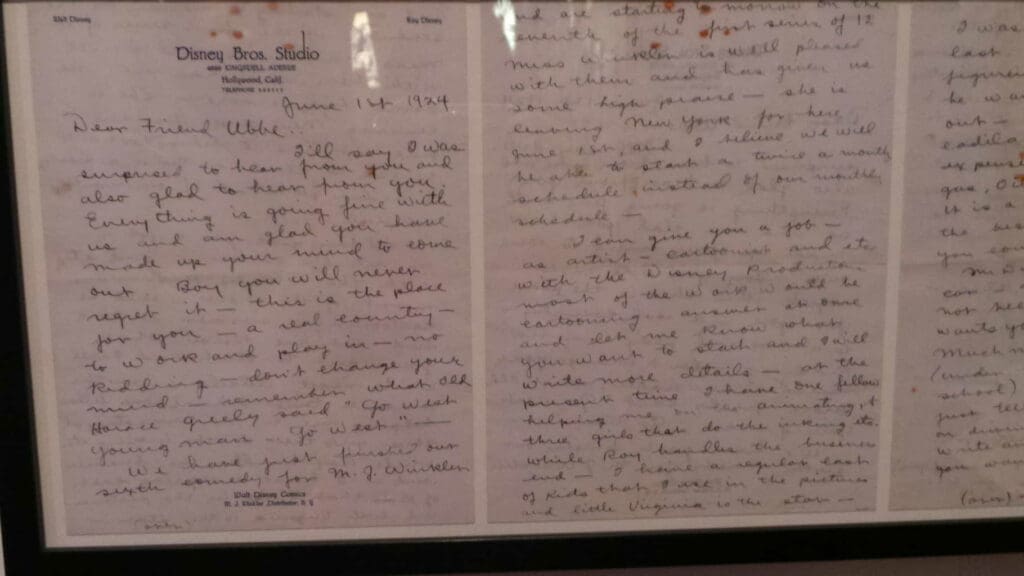 Walt Disney
Roy Disney
Disney Bros. Studio
KINGSWELL AVENUE
Hollywood, Calif.
TELEPHONE
June 1st 1924
Dear Friend Ubbe:
I'll say I was
surprised to hear from you and
also glad to hear from you
Everything is going fine with
us and am glad you have
made up your mind to come
out Boy you will never
regret it — this is the place
for you — a real country —
to work and play in — no
kidding — don't change your
mind — remember what old
Horace Greely said "Go west
young man Go west" —
We have just finished our
sixth comedy for M. J. Winkler
Walt Disney Comics
M. J. Winkler Distributor, N. Y.
(over)
and are starting to morrow on the
seventh of the first series of 12
miss Winkler is well pleased
with them and has given us
some high praise — she is
leaving New York for here
June 1st, and I believe we will
be able to start a twice a month
schedule instead of our monthly
schedule —
I can give you a job —
as artist — cartoonist and etc
with the Disney Productions
most of the work would be
cartooning answer at once
and let me know what
you want to start and I will
write more details — at the
present time I have one fellow
helping me on the animating, +
three girls that do the inking etc.
while Roy handles the business
end — I have a regular cast
of kids that I use in the pictures
and little Virginia is the star —
I was
last
figuring
he wa
out —
cadilac
expens
gas, Oil
It is a
the bes
you cou
Mr. D
can —
not nee
wants yo
Much m
(under
school)
just tell
on
write an
you wan
(over)